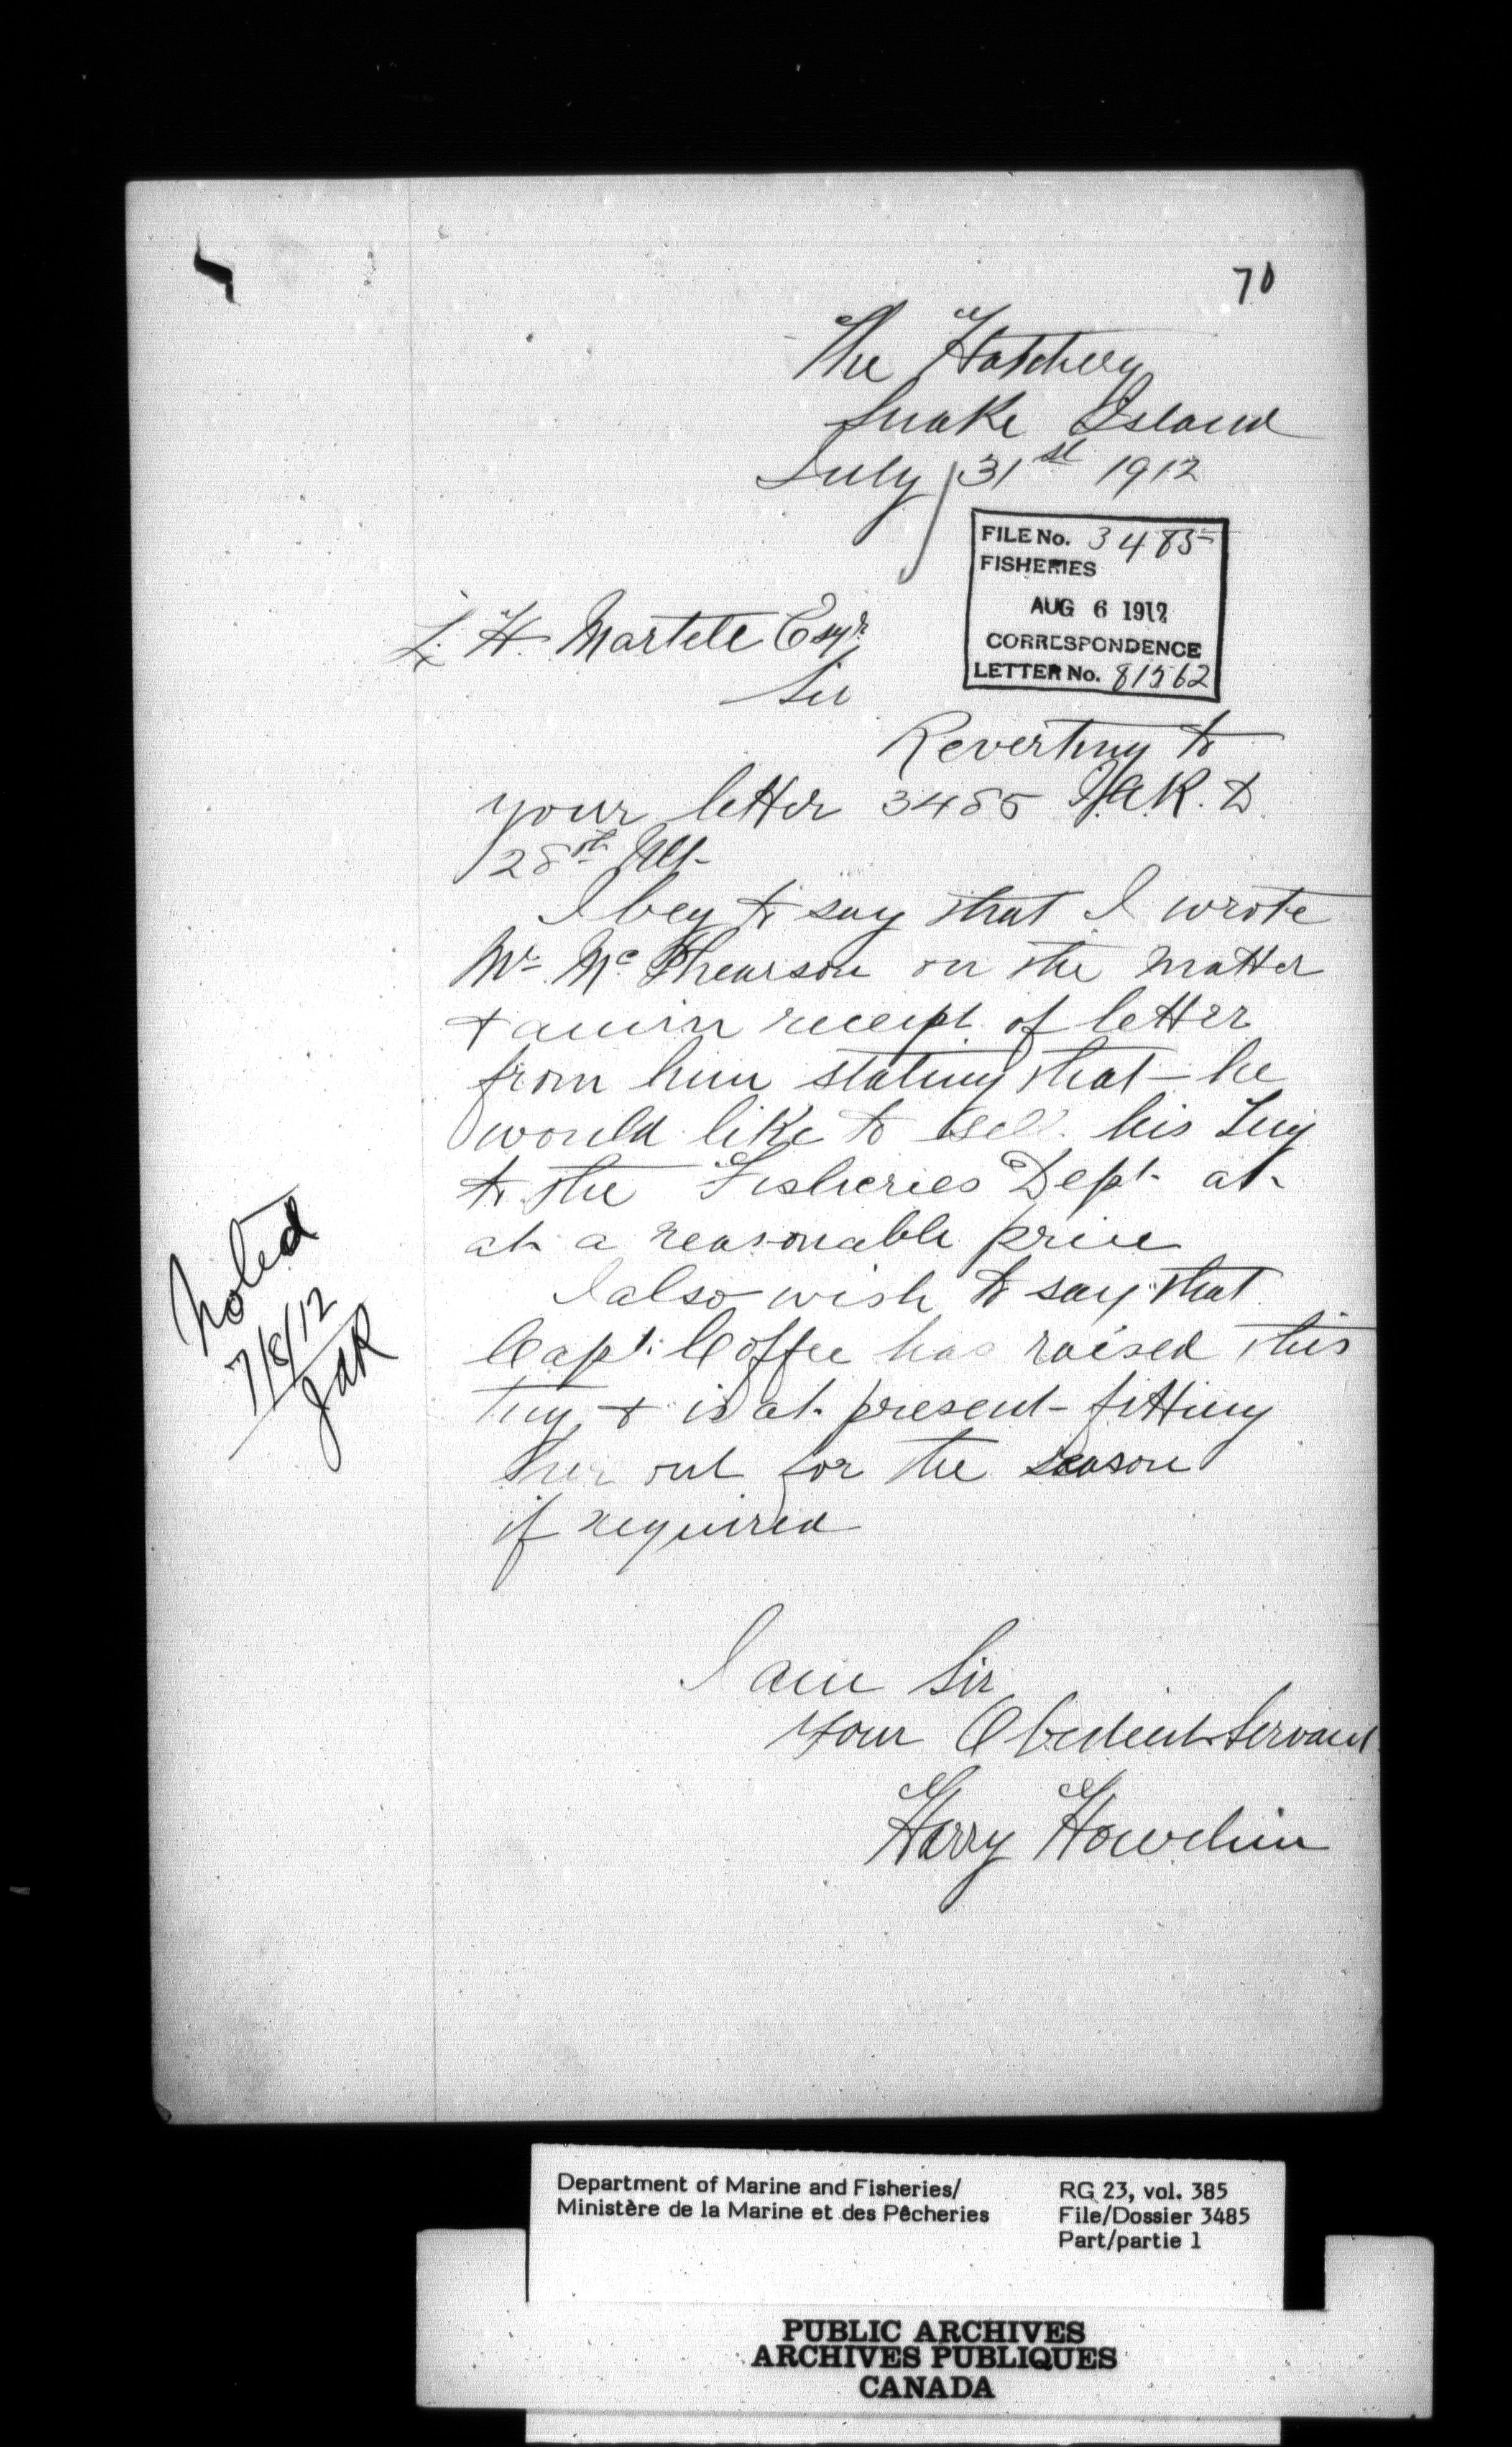 70
The Hatchery
Snake Island
July 31st 1912
FILE No. 3485
FISHERIES
AUG 6 1912
CORRESPONDENCE
LETTER No. 81562
L. H. Martell Esqr.
Sir
Reverting to
your letter 3485 J.A.R. &
28th Ult-
I beg to say that I wrote
Mr. Mc Phearson on the matter
& am in receipt of letter
from him stating that he
would like to sell his Tug
to the Fisheries Dept. at
at a reasonable price
I also wish to say that
Capt. Coffee has raised this
Tug & is at present fitting
her out for the season
if required
noted
7/8/12
JAR
I am Sir
Your Obedient Servant
Harry
Department of Marine and Fisheries/
Ministère de la Marine et des Pêcheries
RG 23, vol. 385
File/Dossier 3485
Part/partie 1
PUBLIC ARCHIVES
ARCHIVES PUBLIQUES
CANADA